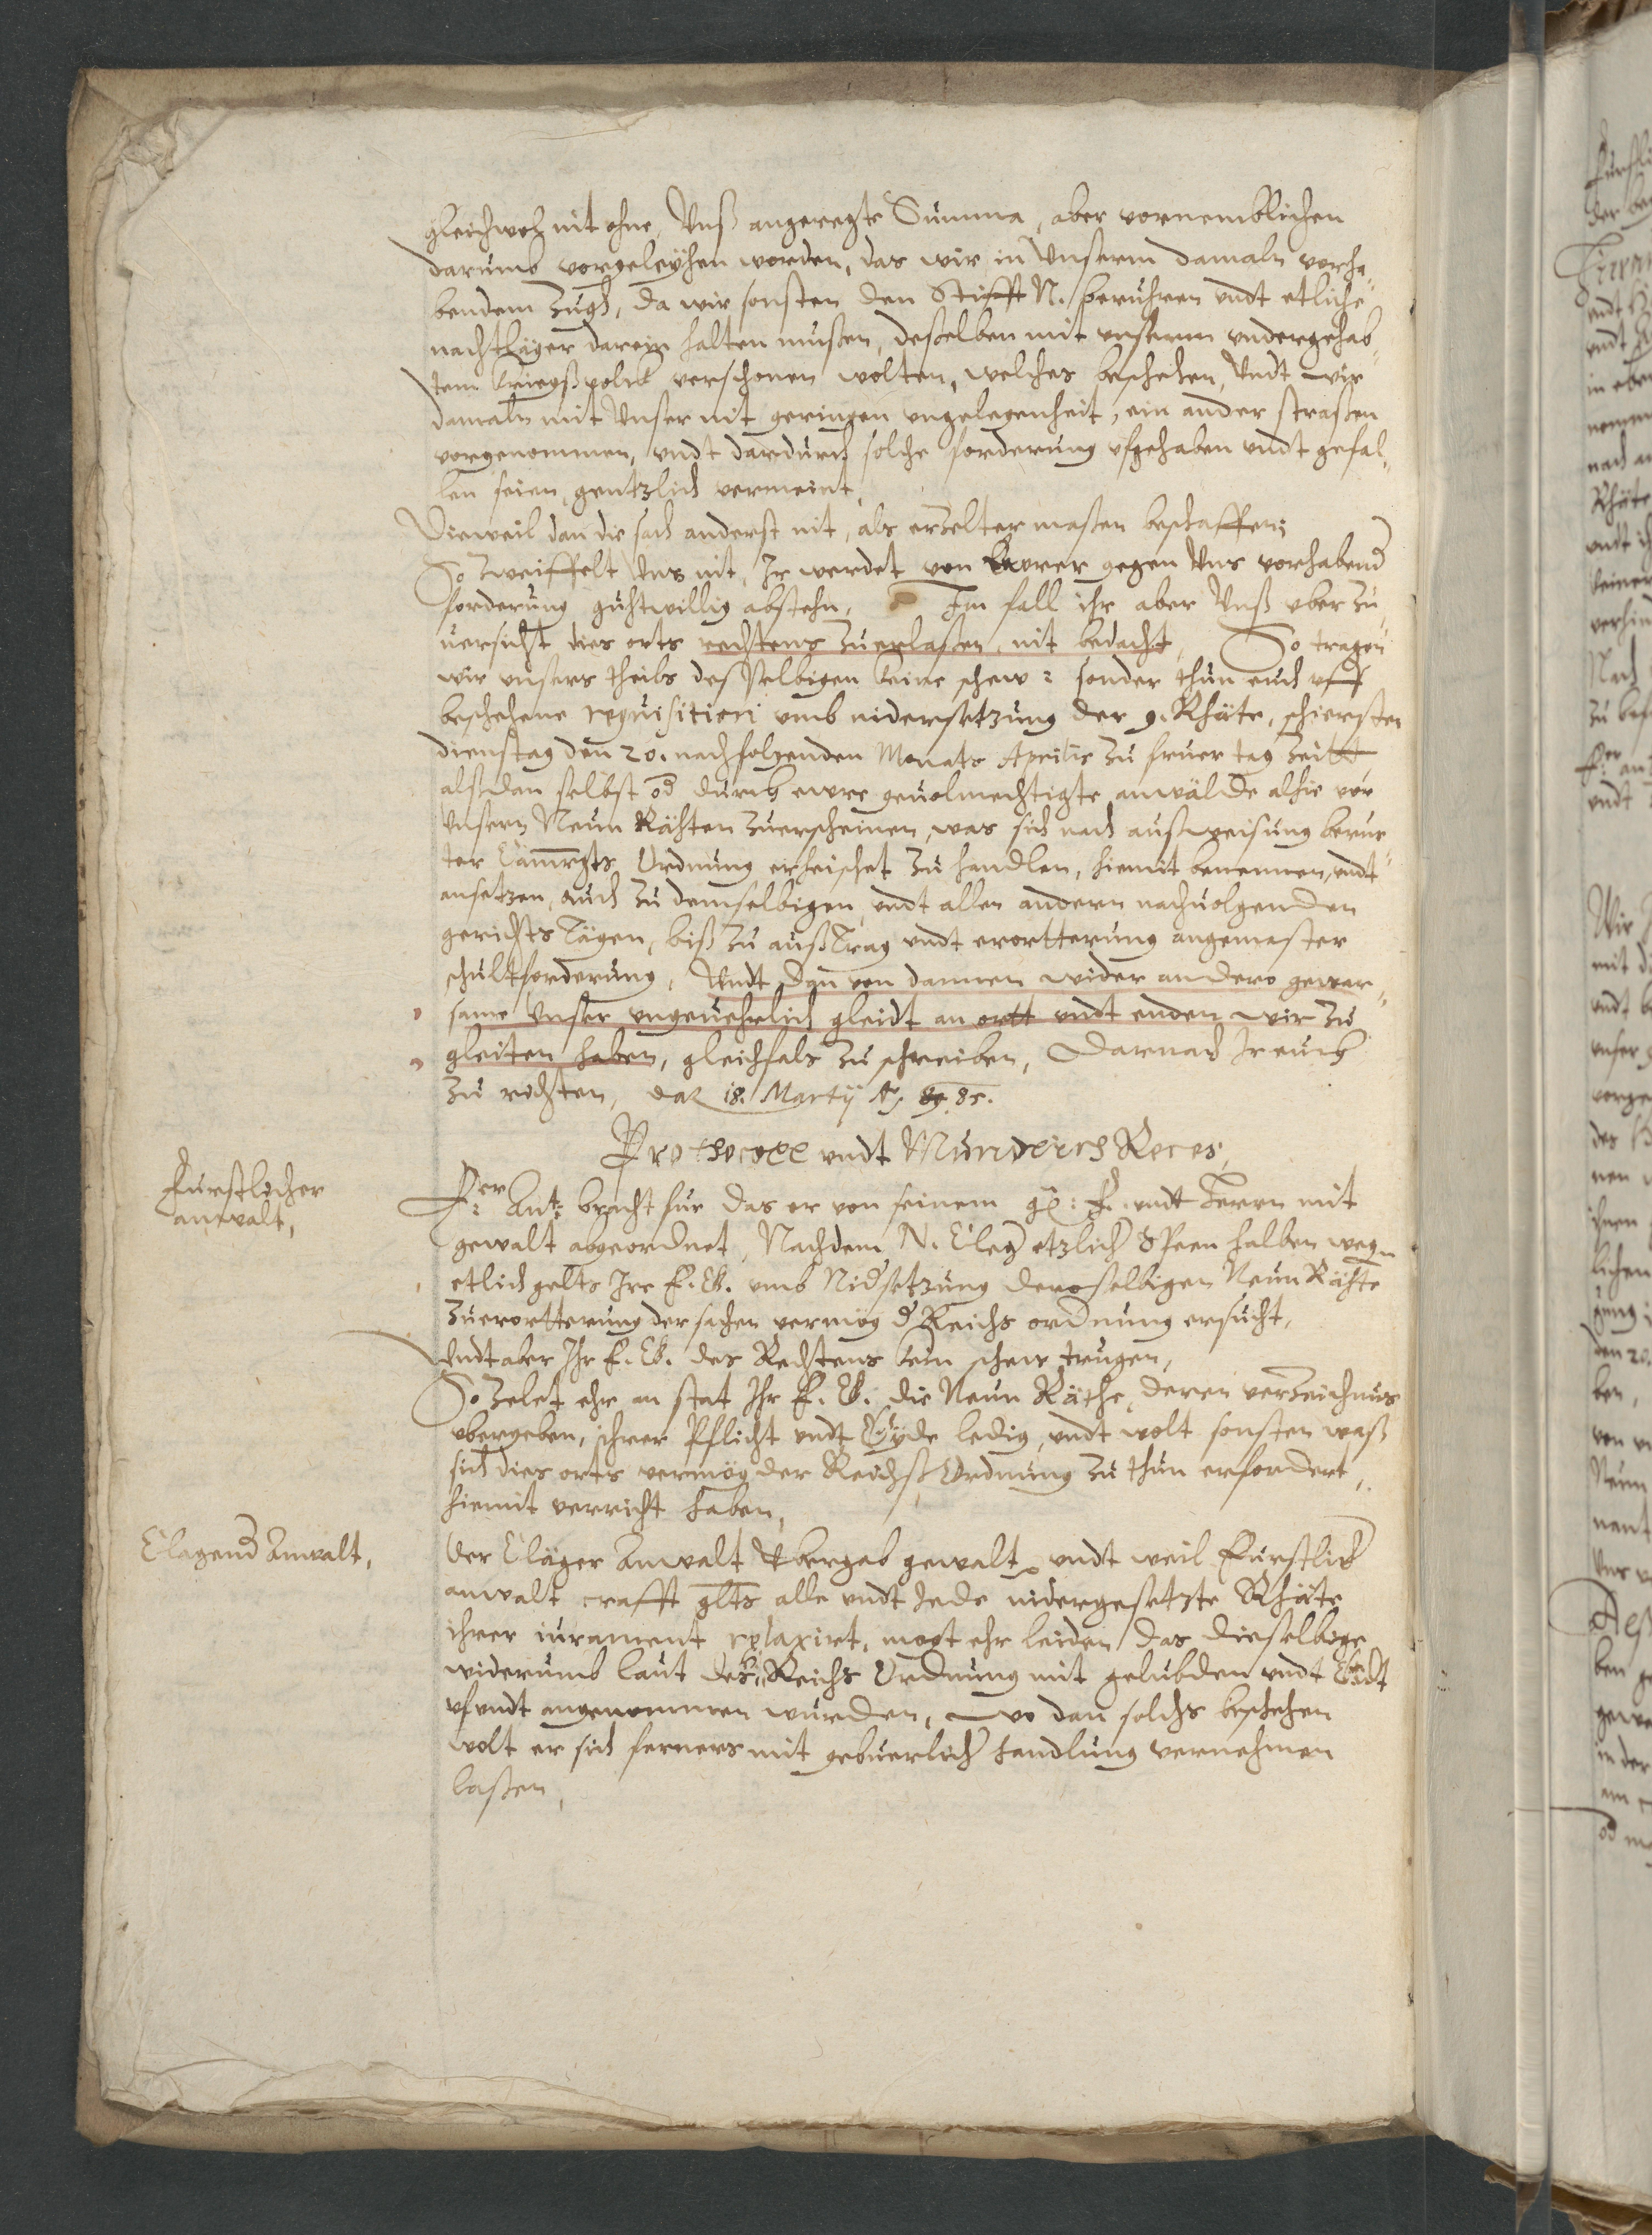 gleichwol nit ohne, Unß angeregte Summa, aber vornemblichen
darumb vorgeleyhen worden, das wir in Unserem damaln vorha„
bendem Zugh, da wir sonsten den Stifft N. beruhren undt etliche
nachtläger darein halten mußen, deßelben mit unserem undergehab„
tem kriegßvolck verschonen wolten, welches beschehen, Undt wir
damaln mit Unser nit geringen ungelegenheit, ein ander straßen
vorgenommen, undt dardurch solche forderung ufgehaben undt gefal„
len seien, gentzlich vermeint,
Dieweil dan die sach anderst nit, als erzelter maßen beschaffen;
So zweiffelt Uns nit, Ir werdet von Eurer gegen Uns vorhabend
forderung guhtwillig abstehn, Im fall ihr aber Unß uber zu
versicht dies orts rechtens zuerlaßen, nit bedacht, So tragen
wir unsers theils desselbigen keine schew: sonder thun euch uff
beschehene requisition umb nidersetzung der 9. Rhäte, schiersten
dienstag den 20. nachfolgenden Monats Aprilis zu fruer tag Zeitt
alßdan selbst od durch ewre gevolmechtigte anwälde alhie vor
Unsern Neun Rähten zuerscheinen, was sich nach außweisung berur
ter Camrgts Ordnung erheischet zu handlen, hiemit benennen, undt
ansetzen, auch zu demselbigen, undt allen andern nachvolgenden
gerichts Tägen, biß zu außtrag undt erortterung angemaster
schultforderung, Undt dan von dannen wider an dero gewar„
same Unser ungevehrlich gleidt an ortt undt enden wir zu
gleiten haben, gleichfals zu schreiben, Darnach Ir euch
zu richten, dat 18. Martij Aō 89. 85.
Prothocoll undt Mundlich Reces,
Furstlicher
anwalt,
Fer Ant: bracht fur das er von seinem gn: F. undt Herrn mit
gewalt abgeordnet, Nachdem N. Cleger etzlicher Speen halben wegn
etlich gelts Ire F. G. umb Nidsetzung deroselbigen Neun Rähte
zuerortterung der sachen vermög d Reichs ordnung ersucht,
Undt aber Ihr F. G. des Rechtens kein schew trugen,
So zelet ehr an stat Ihr F. G. die Neun Räthe, deren verzeichnus
ubergeben, ihrer Pflicht undt Eyde ledig, undt wolt sonsten waß
sich dies orts vermög der Reichß Ordnung zu thun erfordert,
hiemit verricht haben,
Clagend Anwalt,
Der Cläger Anwalt Ubergab gewalt, undt weil Furstlich
anwalt crafft glts alle undt Jede nidergesetzte Rhäte
ihrer iurament relaxirt, mogt ehr leiden das dieselbige
widerumb laut des Reichs Ordnung mit gelubden undt Eidt
uf undt angenommen wurden, wo dan solchs beschehen
wolt er sich ferners mit gebuerlicher handlung vernehmen
laßen,